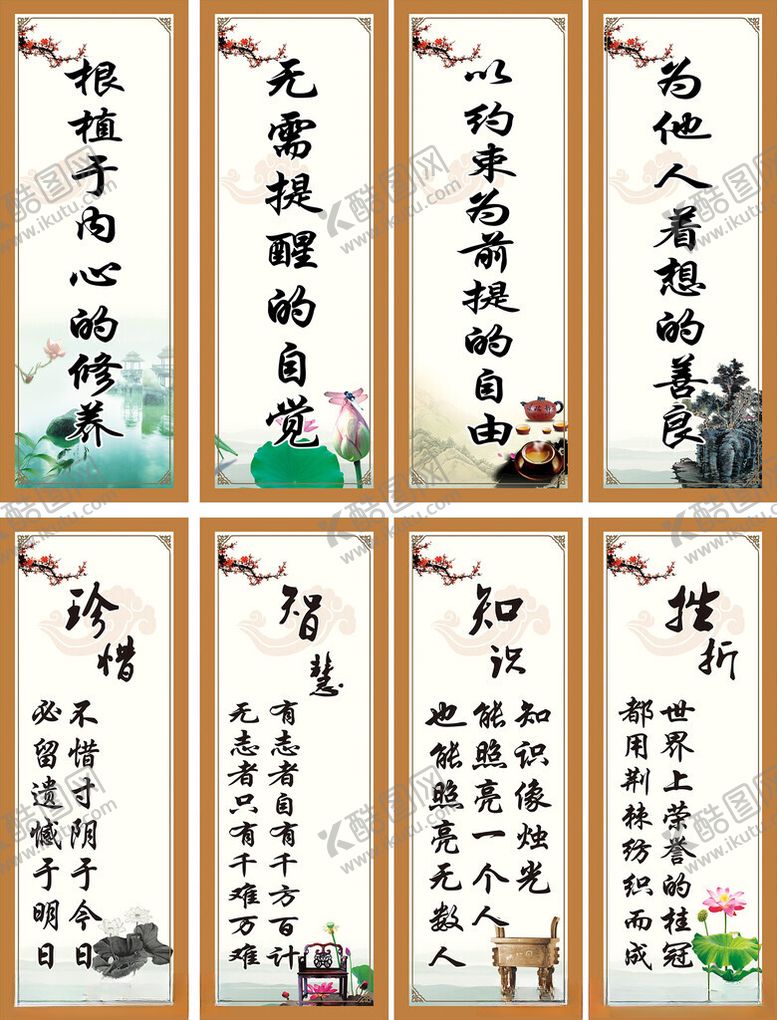 根植于内心的修养
无需提醒的自觉
以约束为前提的自由
为他人着想的善良
珍惜
不惜寸阴于今日
必留遗憾于明日
智慧
有志者自有千方百计
无志者只有千难万难
知识
知识像烛光
能照亮一个人
也能照亮无数人
挫折
世界上荣誉的桂冠
都用荆棘纺织而成
酷图网
www.ikutu.com